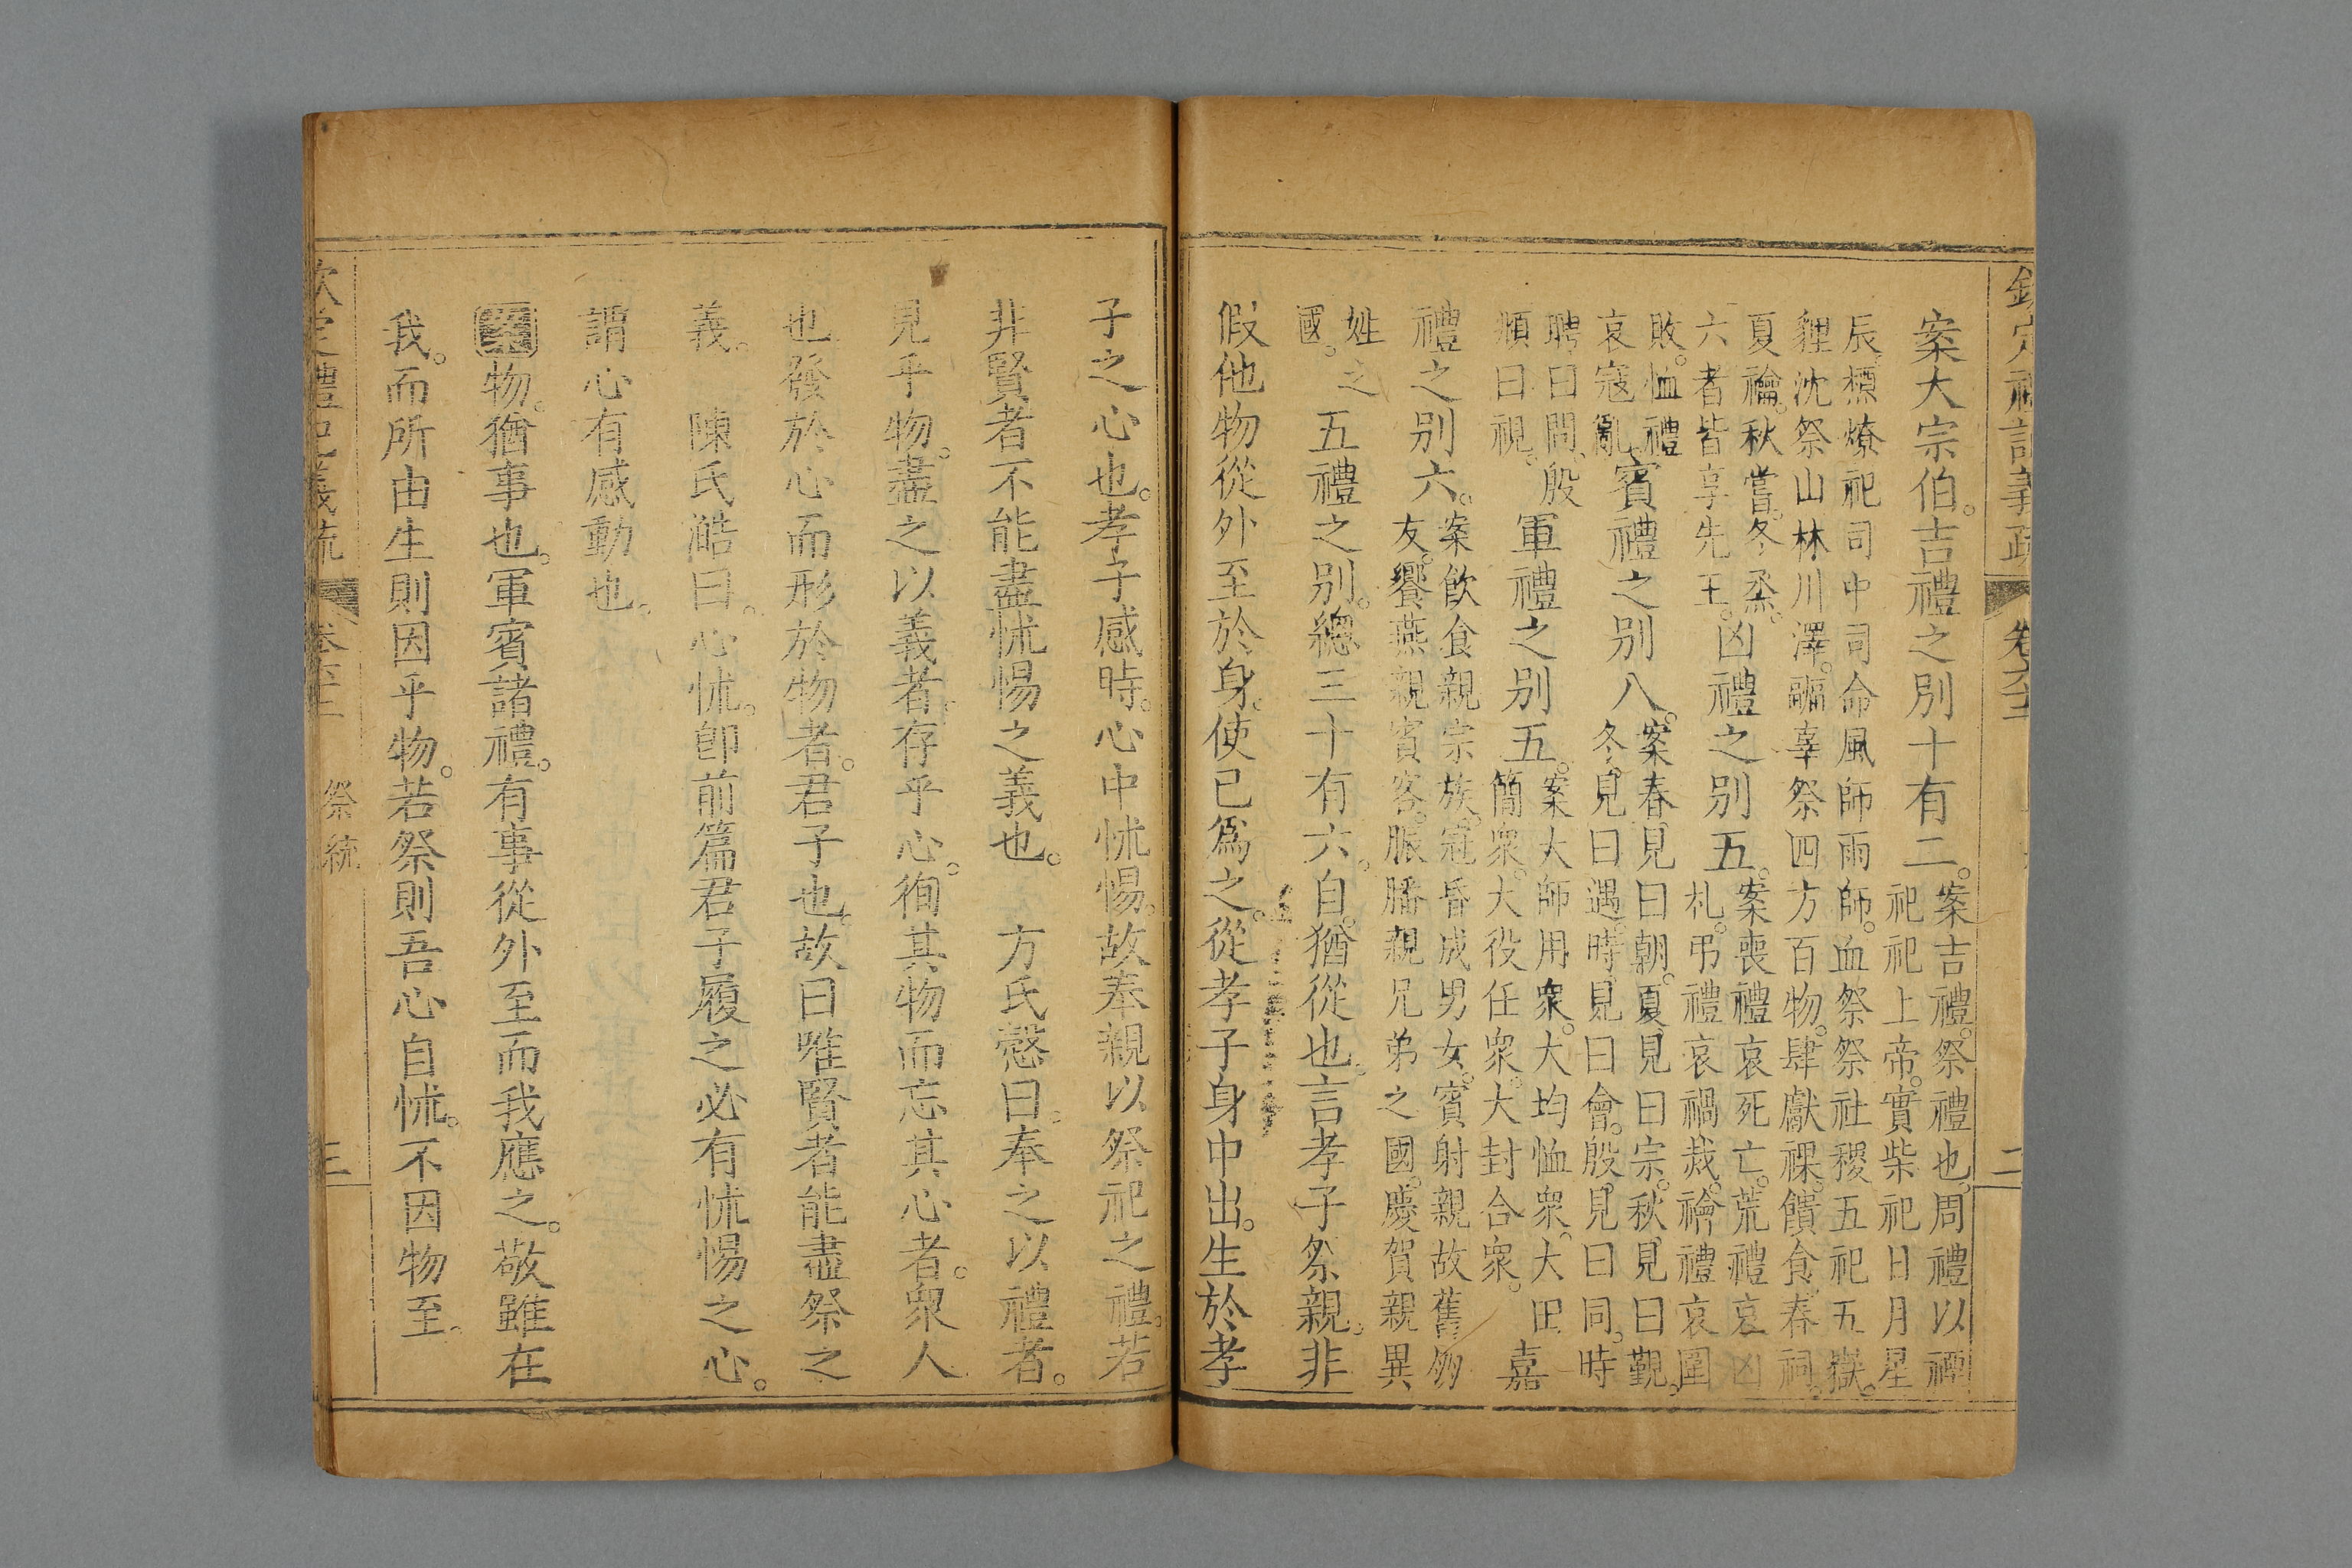 欽定禮記義疏 卷六十二 二
案大宗伯。吉禮之別十有二。案吉禮。祭禮也。周禮以禋
祀祀上帝。實柴祀日月星
辰。槱燎祀司中司命風師雨師。血祭祭社稷五祀五嶽。
貍沈祭山林川澤。疈辜祭四方百物。肆獻祼。饋食。春祠。
夏禴。秋嘗。冬烝。
六者皆享先王。凶禮之別五。案喪禮哀死亡。荒禮哀凶
札。弔禮哀禍烖。襘禮哀圍
敗。恤禮
哀寇亂。賓禮之別八。案春見曰朝。夏見曰宗。秋見曰覲。
冬見曰遇。時見曰會。殷見曰同。時
聘曰問。殷
頫曰視。軍禮之別五。案大師用衆。大均恤衆。大田
簡衆。大役任衆。大封合衆。嘉
禮之別六。案飲食親宗族。冠昏成男女。賓射親故舊朋
友。饗燕親賓客。脤膰親兄弟之國。慶賀親異
姓之
國。五禮之別。總三十有六。自。猶從也。言孝子祭親。非
假他物從外至於身。使已爲之。從孝子身中出。生於孝
子之心也。孝子感時。心中怵惕。故奉親以祭祀之禮。若
非賢者不能盡怵惕之義也。 方氏慤曰。奉之以禮者。
見乎物。盡之以義者。存乎心。徇其物而忘其心者。衆人
也。發於心而形於物者。君子也。故曰唯賢者能盡祭之
義。 陳氏澔曰。心怵。卽前篇君子履之必有怵惕之心。
謂心有感動也。
案物。猶事也。軍賓諸禮。有事從外至而我應之。敬雖在
我。而所由生則因乎物。若祭則吾心自怵。不因物至。
欽定禮記義疏 卷六十二 祭統 三